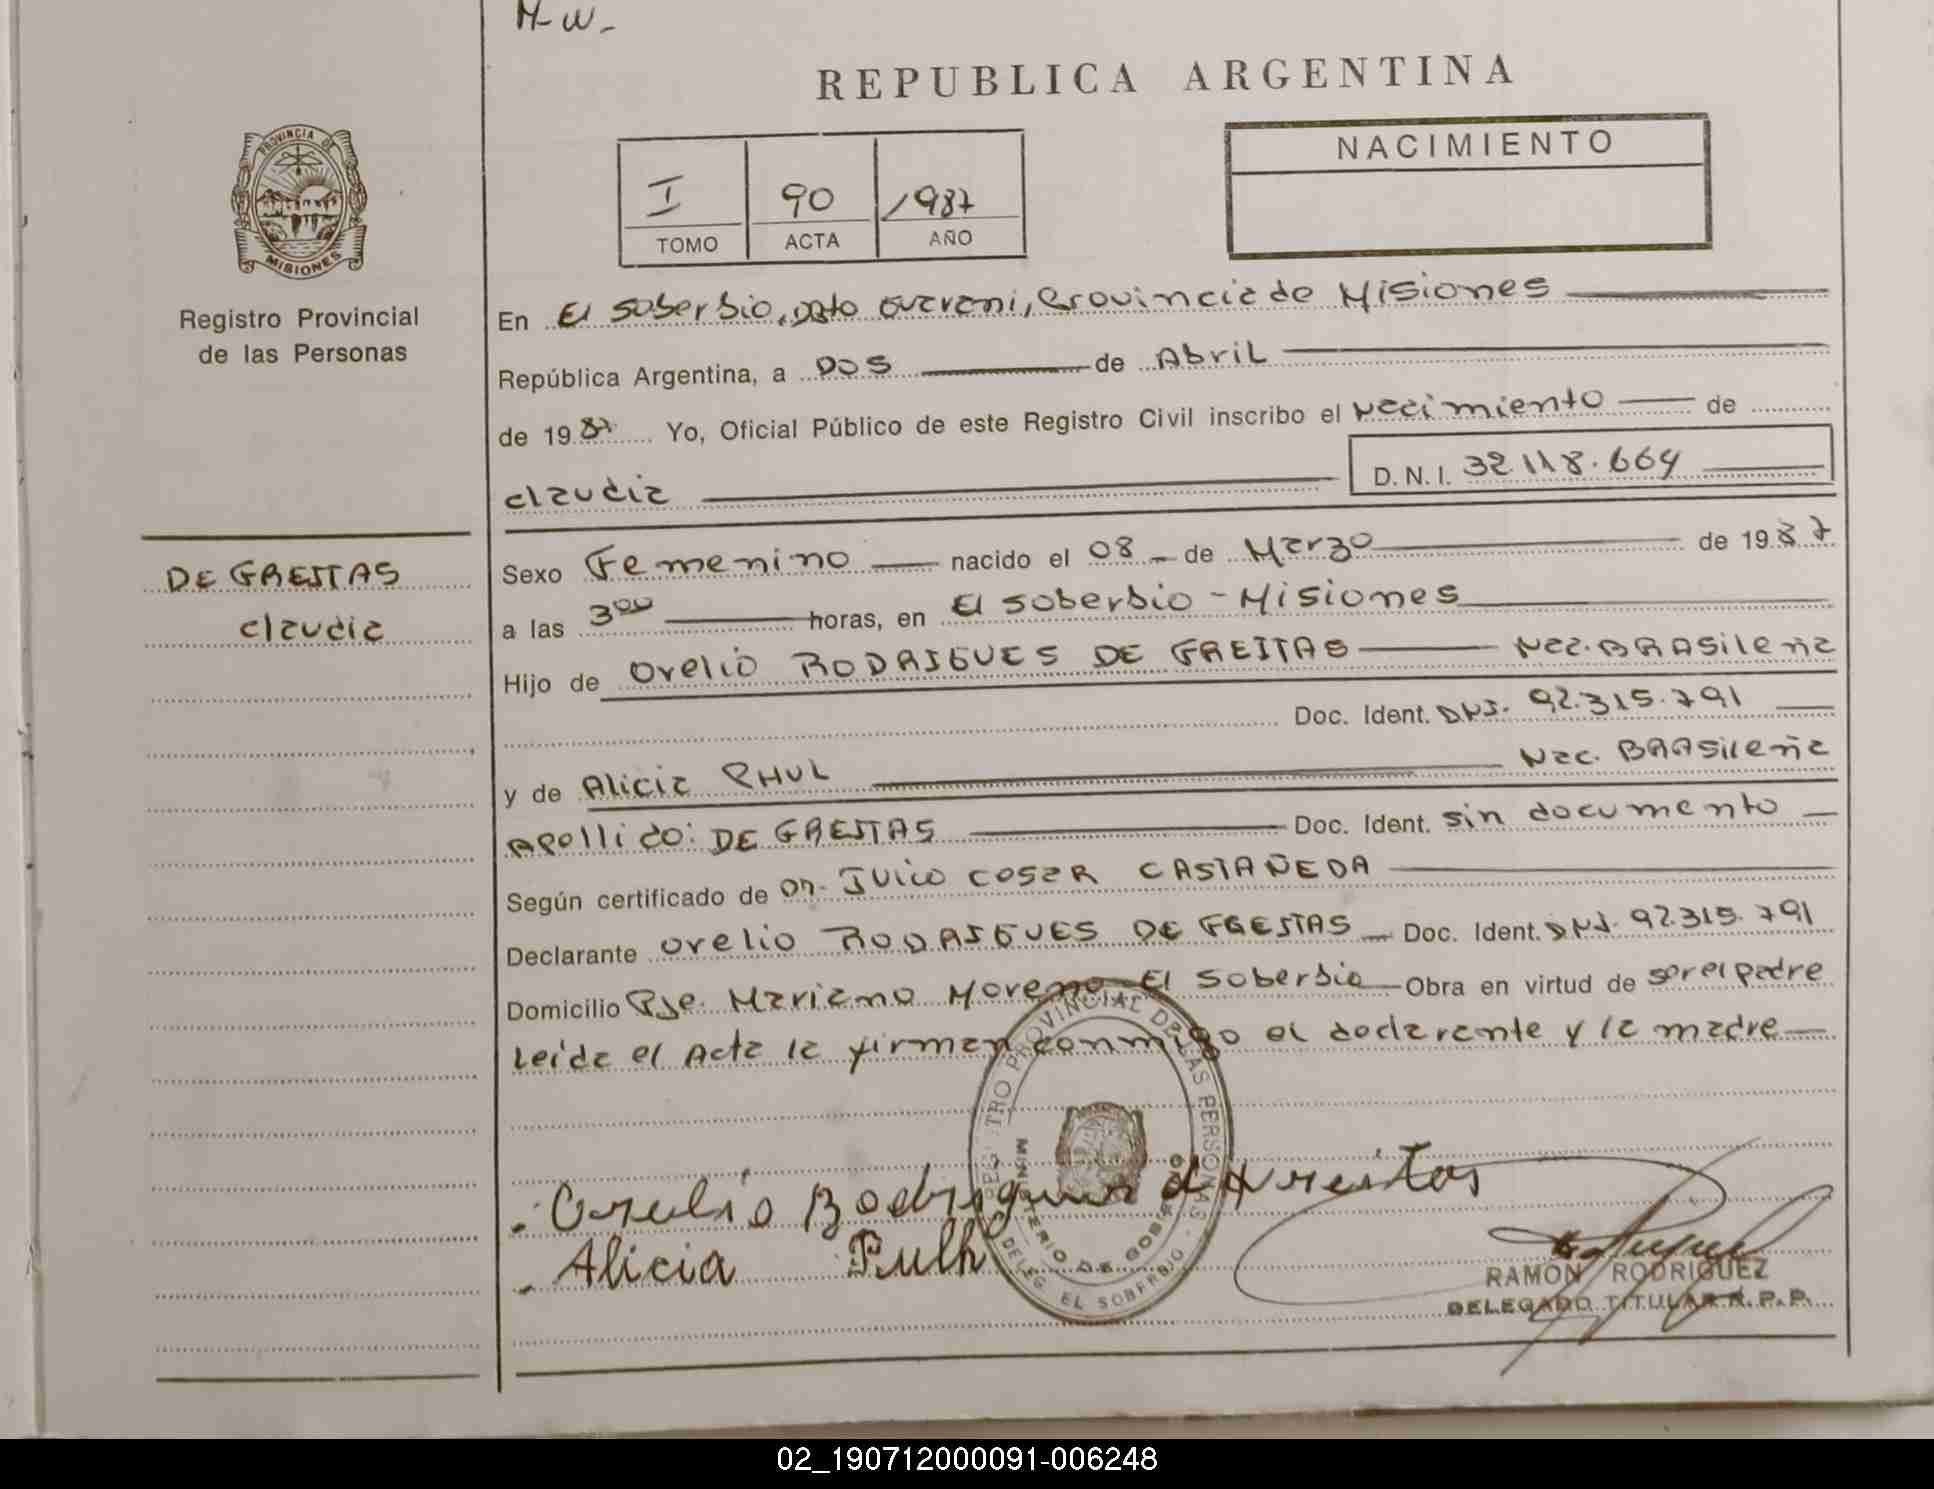 H-W-
REPUBLICA ARGENTINA
PROVINCIA DE MISIONES
Registro Provincial
de las Personas
I 90 1987
TOMO ACTA AÑO
NACIMIENTO
En El Soberbio, Dpto Guarani, Provincia de Misiones
República Argentina, a DOS de Abril
de 1987 Yo, Oficial Público de este Registro Civil inscribo el Nacimiento de
Claudia D.N.I. 32.118.664
DE FREITAS
Claudia
Sexo Femenino nacido el 08 de Marzo de 1987
a las 3 00 horas, en El Soberbio - Misiones
Hijo de Orelio RODRIGUES DE FREITAS Nac. BRASileña
Doc. Ident. DNI. 92.315.791
y de Alicia PHUL Nac. BRASileña
Apellido: DE FREITAS Doc. Ident. sin documento
Según certificado de Dr. Julio Cesar CASTAÑEDA
Declarante Orelio RODRIGUES DE FREITAS Doc. Ident. DNI. 92.315.791
Domicilio Pje. Mariano Moreno El Soberbio Obra en virtud de ser el padre
Leida el Acta la firman conmigo el declarante y la madre
REGISTRO PROVINCIAL DE LAS PERSONAS
MINISTERIO DE GOBIERNO
DELEG. EL SOBERBIO
Orelio Rodrigues d Freitas
Alicia Pulh
RAMON RODRIGUEZ
DELEGADO TITULAR R.P.P.
02_190712000091-006248